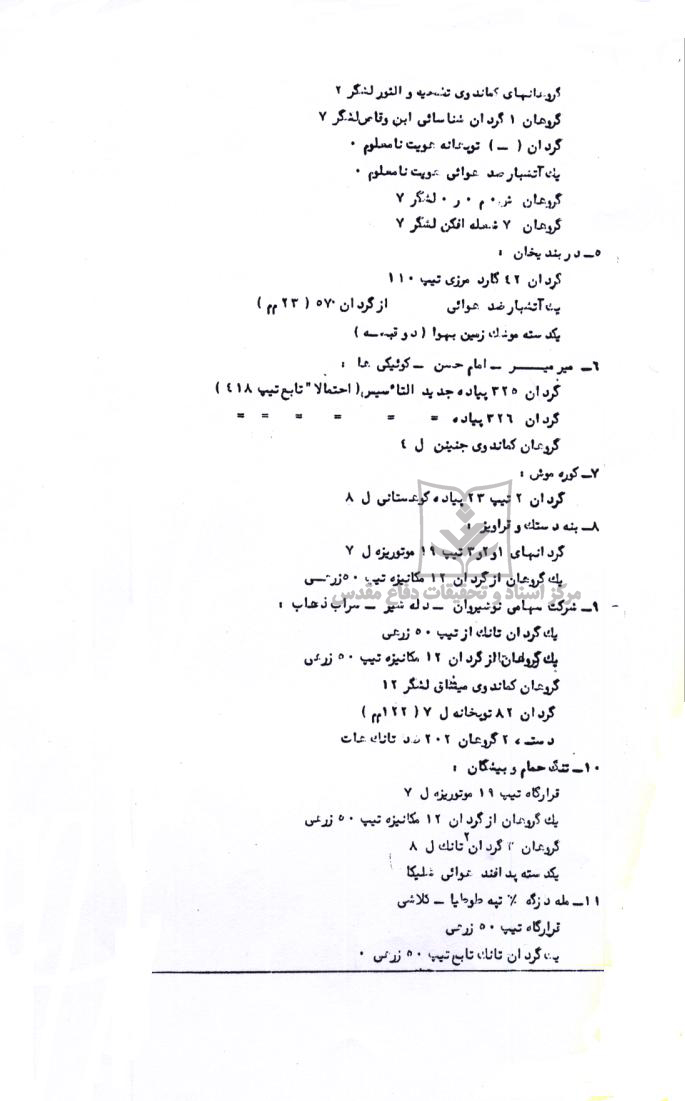 گروهانهای کماندوی تضحیه و الثور لشگر ۲
گروهان ۱ گردان شناسائی ابن وقاص لشگر ۷
گردان ( ــ ) توپخانه هویت نامعلوم ۰
یك آتشبار ضد هوائی هویت نامعلوم ۰
گروهان ش ۰ م ۰ ر ۰ لشگر ۷
گروهان ۷ شعله افکن لشگر ۷
۵ــ دربندیخان :
گردان ۴۲ گارد مرزی تیپ ۱۱۰
یك آتشبار ضد هوائی از گردان ۵۷۰ ( ۲۳ مم )
یکدسته موشك زمین بهوا ( دو قبضه )
۶ــ میر میـــر ــ امام حسن ــ کوئیکی ها :
گردان ۳۲۵ پیاده جدید التاٴسیس ( احتمالا" تابع تیپ ۴۱۸ )
گردان ۳۲۶ پیاده = = = = = = =
گروهان کماندوی جنین ل ۴
۷ــ کوره موش :
گردان ۲ تیپ ۲۳ پیاده کوهستانی ل ۸
۸ــ بنه دستك و قراویز :
گردانهای ۱و۲و۳ تیپ ۱۹ موتوریزه ل ۷
یك گروهان از گردان ۱۲ مکانیزه تیپ ۵۰ زرهــی
مرکز اسناد و تحقیقات دفاع مقدس
۹ــ شرکت سهامی نوشیروان ــ دله شیر ــ سراب ذهاب :
یك گردان تانك از تیپ ۵۰ زرهی
یك گروهان از گردان ۱۲ مکانیزه تیپ ۵۰ زرهی
گروهان کماندوی میثاق لشگر ۱۲
گردان ۸۲ توپخانه ل ۷ ( ۱۲۲مم )
دسته ۲ گروهان ۲۰۲ ضد تانك هات
۱۰ــ تنگ حمام و بیشگان :
قرارگاه تیپ ۱۹ موتوریزه ل ۷
یك گروهان از گردان ۱۲ مکانیزه تیپ ۵۰ زرهی
گروهان گردان ۲ تانك ل ۸
یکدسته پدافند هوائی شلیکا
۱۱ــ مله دزگه تپه ــ کلاشی
قرارگاه تیپ ۵۰ زرهی
یك گردان تانك تابع تیپ ۵۰ زرهی ۰